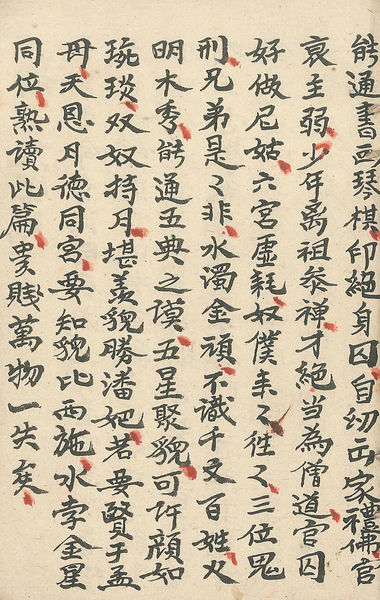 能通書画琴棋印絕身囚自幼出家禮佛官
衰主弱少年离祖参禅才絕当為僧道官囚
好做尼姑六宮虛耗奴僕来〻往〻三位鬼
刑兄弟是〻非水濁金頑不識千文百姓火
明木秀能通五典之謨五星聚貌可許顔如
琬琰双奴持月堪羡貌勝潘妃若要賢于孟
毋天恩月德同宮要知貌比西施水孛金星
同位熟讀此篇貴賤萬物一失矣